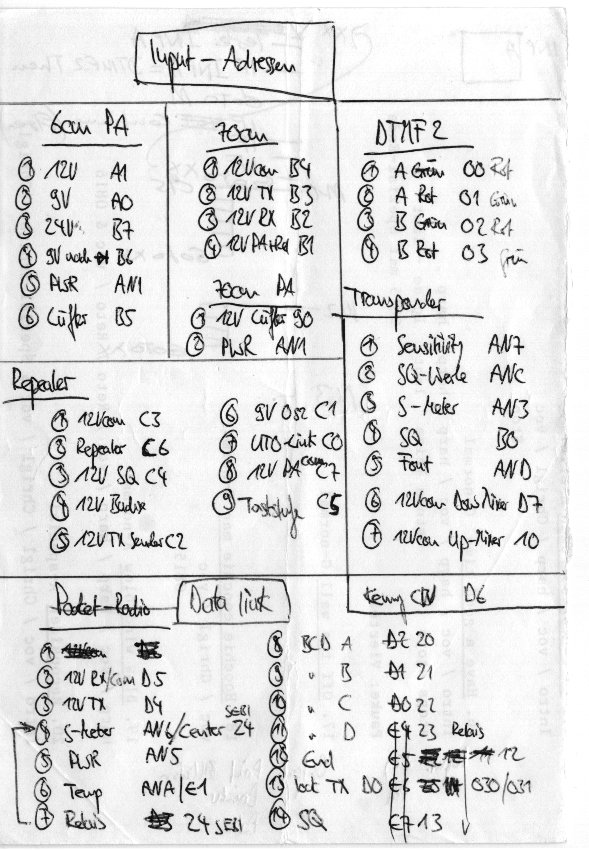 Input - Adressen
6cm PA
① 12V A1
② 9V A0
③ 24V B7
④ 9V nach B6
⑤ PWR AN1
⑥ Lüfter B5
70cm
① 12Vcom B4
② 12V TX B3
③ 12V RX B2
④ 12V PA+Rel B1
70cm PA
① 12V Lüfter 90
② PWR AN1
DTMF 2
① A Grün 00 Rot
② A Rot 01 Grün
③ B Grün 02 Rot
④ B Rot 03 Grün
Transponder
① Sensitivity AN7
② SQ-Werte ANC
③ S-Meter AN3
④ SQ B0
⑤ Font AND
⑥ 12Vcom DownMixer D7
⑦ 12Vcom Up-Mixer 10
Repeater
① 12Vcom C3
② Repeater C6
③ 12V SQ C4
④ 12V
⑤ 12V TX Sender C2
⑥ 9V Osz C1
⑦ UTO-Link C0
⑧ 12V PA com C7
⑨ Taststufe C5
Kenng D6
Packet-Radio
Data link
①
② 12V RX/com D5
③ 12V TX D4
④ S-Meter AN6/Center 24 SEB1
⑤ PWR AN5
⑥ Temp ANA/E1
⑦ Relais 24 SEB1
⑧ BCD A D2 20
⑨ " B D1 21
⑩ " C D0 22
⑪ " D E4 23 Relais
⑫ End E5 12
⑬ lock TX D0 E6 030/031
⑭ SQ E7 13